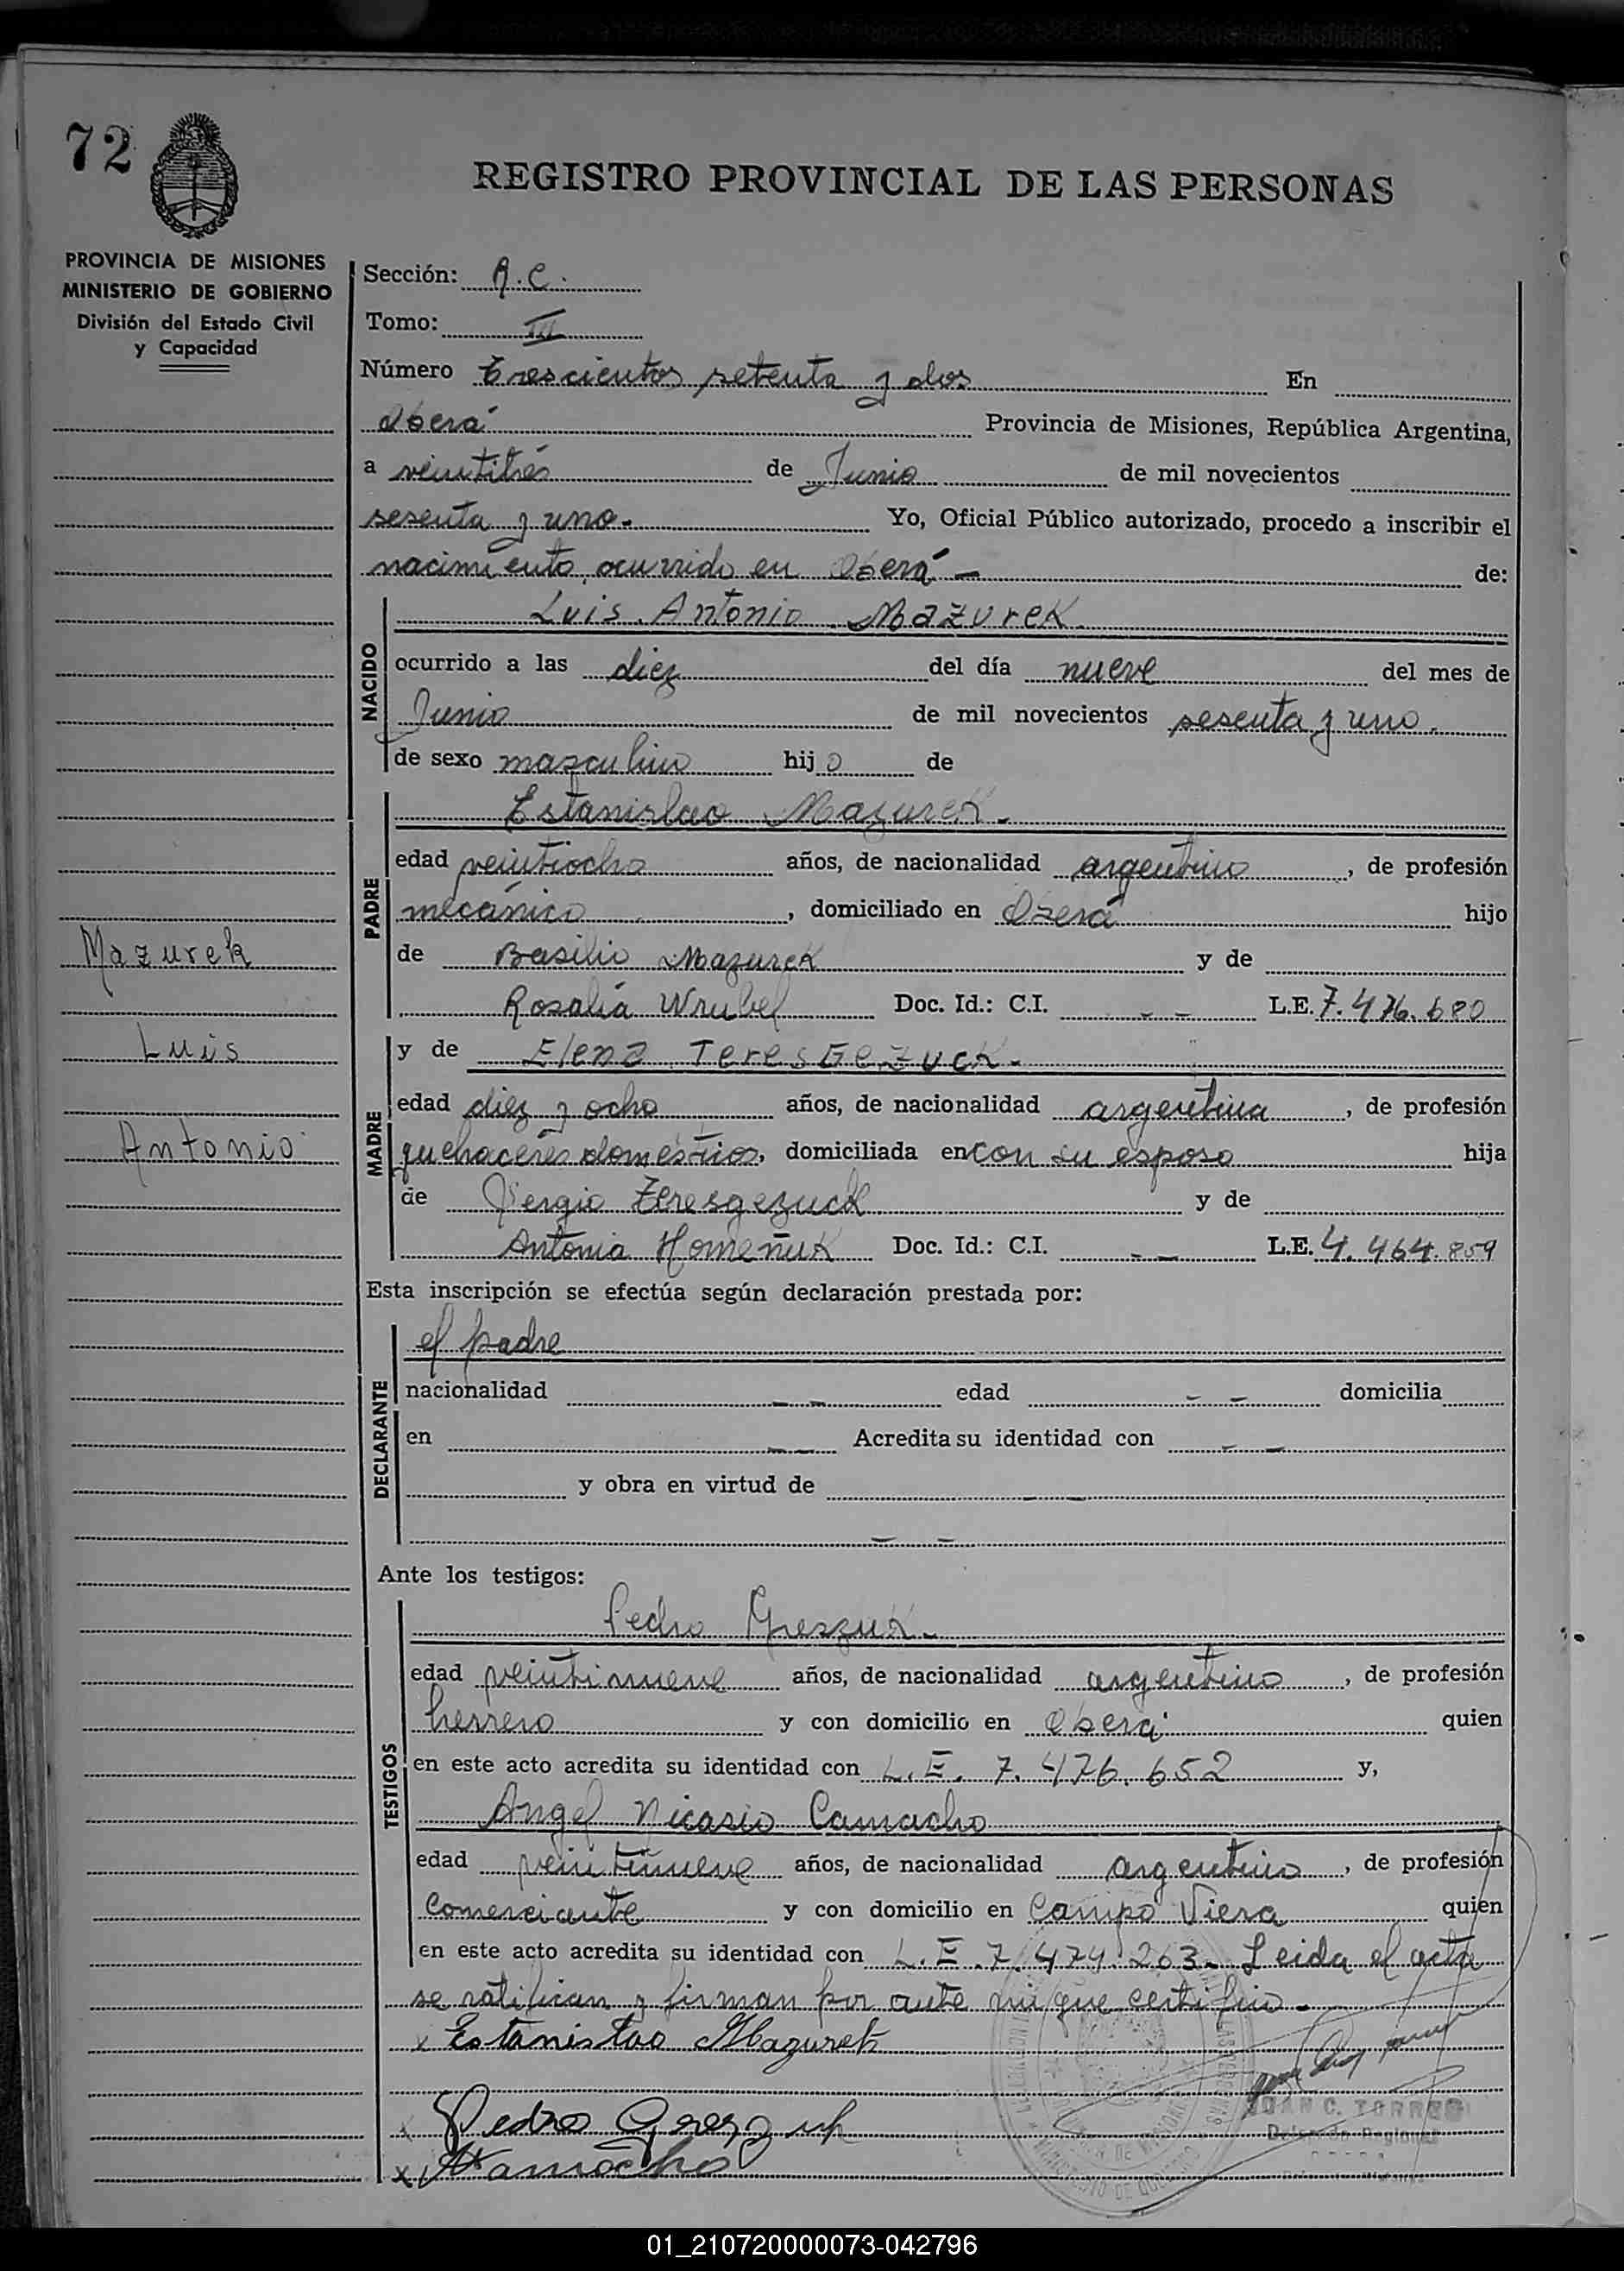 72
REGISTRO PROVINCIAL DE LAS PERSONAS
PROVINCIA DE MISIONES
MINISTERIO DE GOBIERNO
División del Estado Civil
y Capacidad
Sección: A.C.
Tomo: III
Número Trescientos setenta y dos En
Oberá Provincia de Misiones, República Argentina,
a veintitrés de Junio de mil novecientos
sesenta y uno.- Yo, Oficial Público autorizado, procedo a inscribir el
nacimiento ocurrido en Oberá - de:
NACIDO
Luis Antonio Mazurek
ocurrido a las diez del día nueve del mes de
Junio de mil novecientos sesenta y uno.
de sexo masculino hijo de
PADRE
Estanislao Mazurek.-
edad veintiocho años, de nacionalidad argentino, de profesión
mecánico, domiciliado en Oberá hijo
de Basilio Mazurek y de
Rosalía Wrubel Doc. Id.: C.I. - - L.E. 7.476.680
Mazurek
Luis
Antonio
MADRE
y de Elena Teresgezuck.-
edad diez y ocho años, de nacionalidad argentina, de profesión
quehaceres domésticos, domiciliada en con su esposo hija
de Sergio Teresgezuck y de
Antonia Homeñuk Doc. Id.: C.I. - - L.E. 4.464.859
Esta inscripción se efectúa según declaración prestada por:
DECLARANTE
el padre
nacionalidad - - edad - - domicilia
en - - Acredita su identidad con - -
y obra en virtud de - -
- -
Ante los testigos:
TESTIGOS
Pedro Greszuk.-
edad veintinueve años, de nacionalidad argentino, de profesión
herrero y con domicilio en Oberá quien
en este acto acredita su identidad con L.E. 7.476.652 y,
Angel Nicasio Camacho
edad veintinueve años, de nacionalidad argentino, de profesión
Comerciante y con domicilio en Campo Viera quien
en este acto acredita su identidad con L.E. 7.474.263.- Leida el acta
se ratifican y firman por ante mi que certifico.-
x Estanislao Mazurek
x Pedro Greszuk
x Camacho
JUAN C. TORRES
01_210720000073-042796